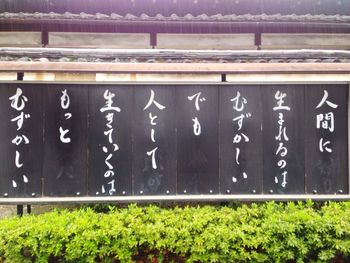 人間に
生まれるのは
むずかしい
でも
人として
生きていくのは
もっと
むずかしい